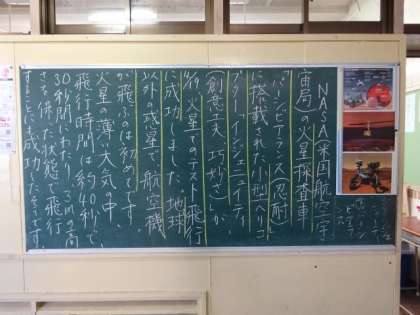 NASA(米国航空宇
宙局)の火星探査車
「パーシビアランス(忍耐)」
に搭載された小型ヘリコ
プター「インジェニュイティ
(創意工夫 巧妙さ)」が、
4/19 火星でのテスト飛行
に成功しました。地球
以外の惑星で航空機
が飛ぶのは初めてです。
火星の薄い大気の中、
飛行時間は約40秒で、
30秒間にわたり、3mの高
さを保った状態で飛行
することに成功したそうです。